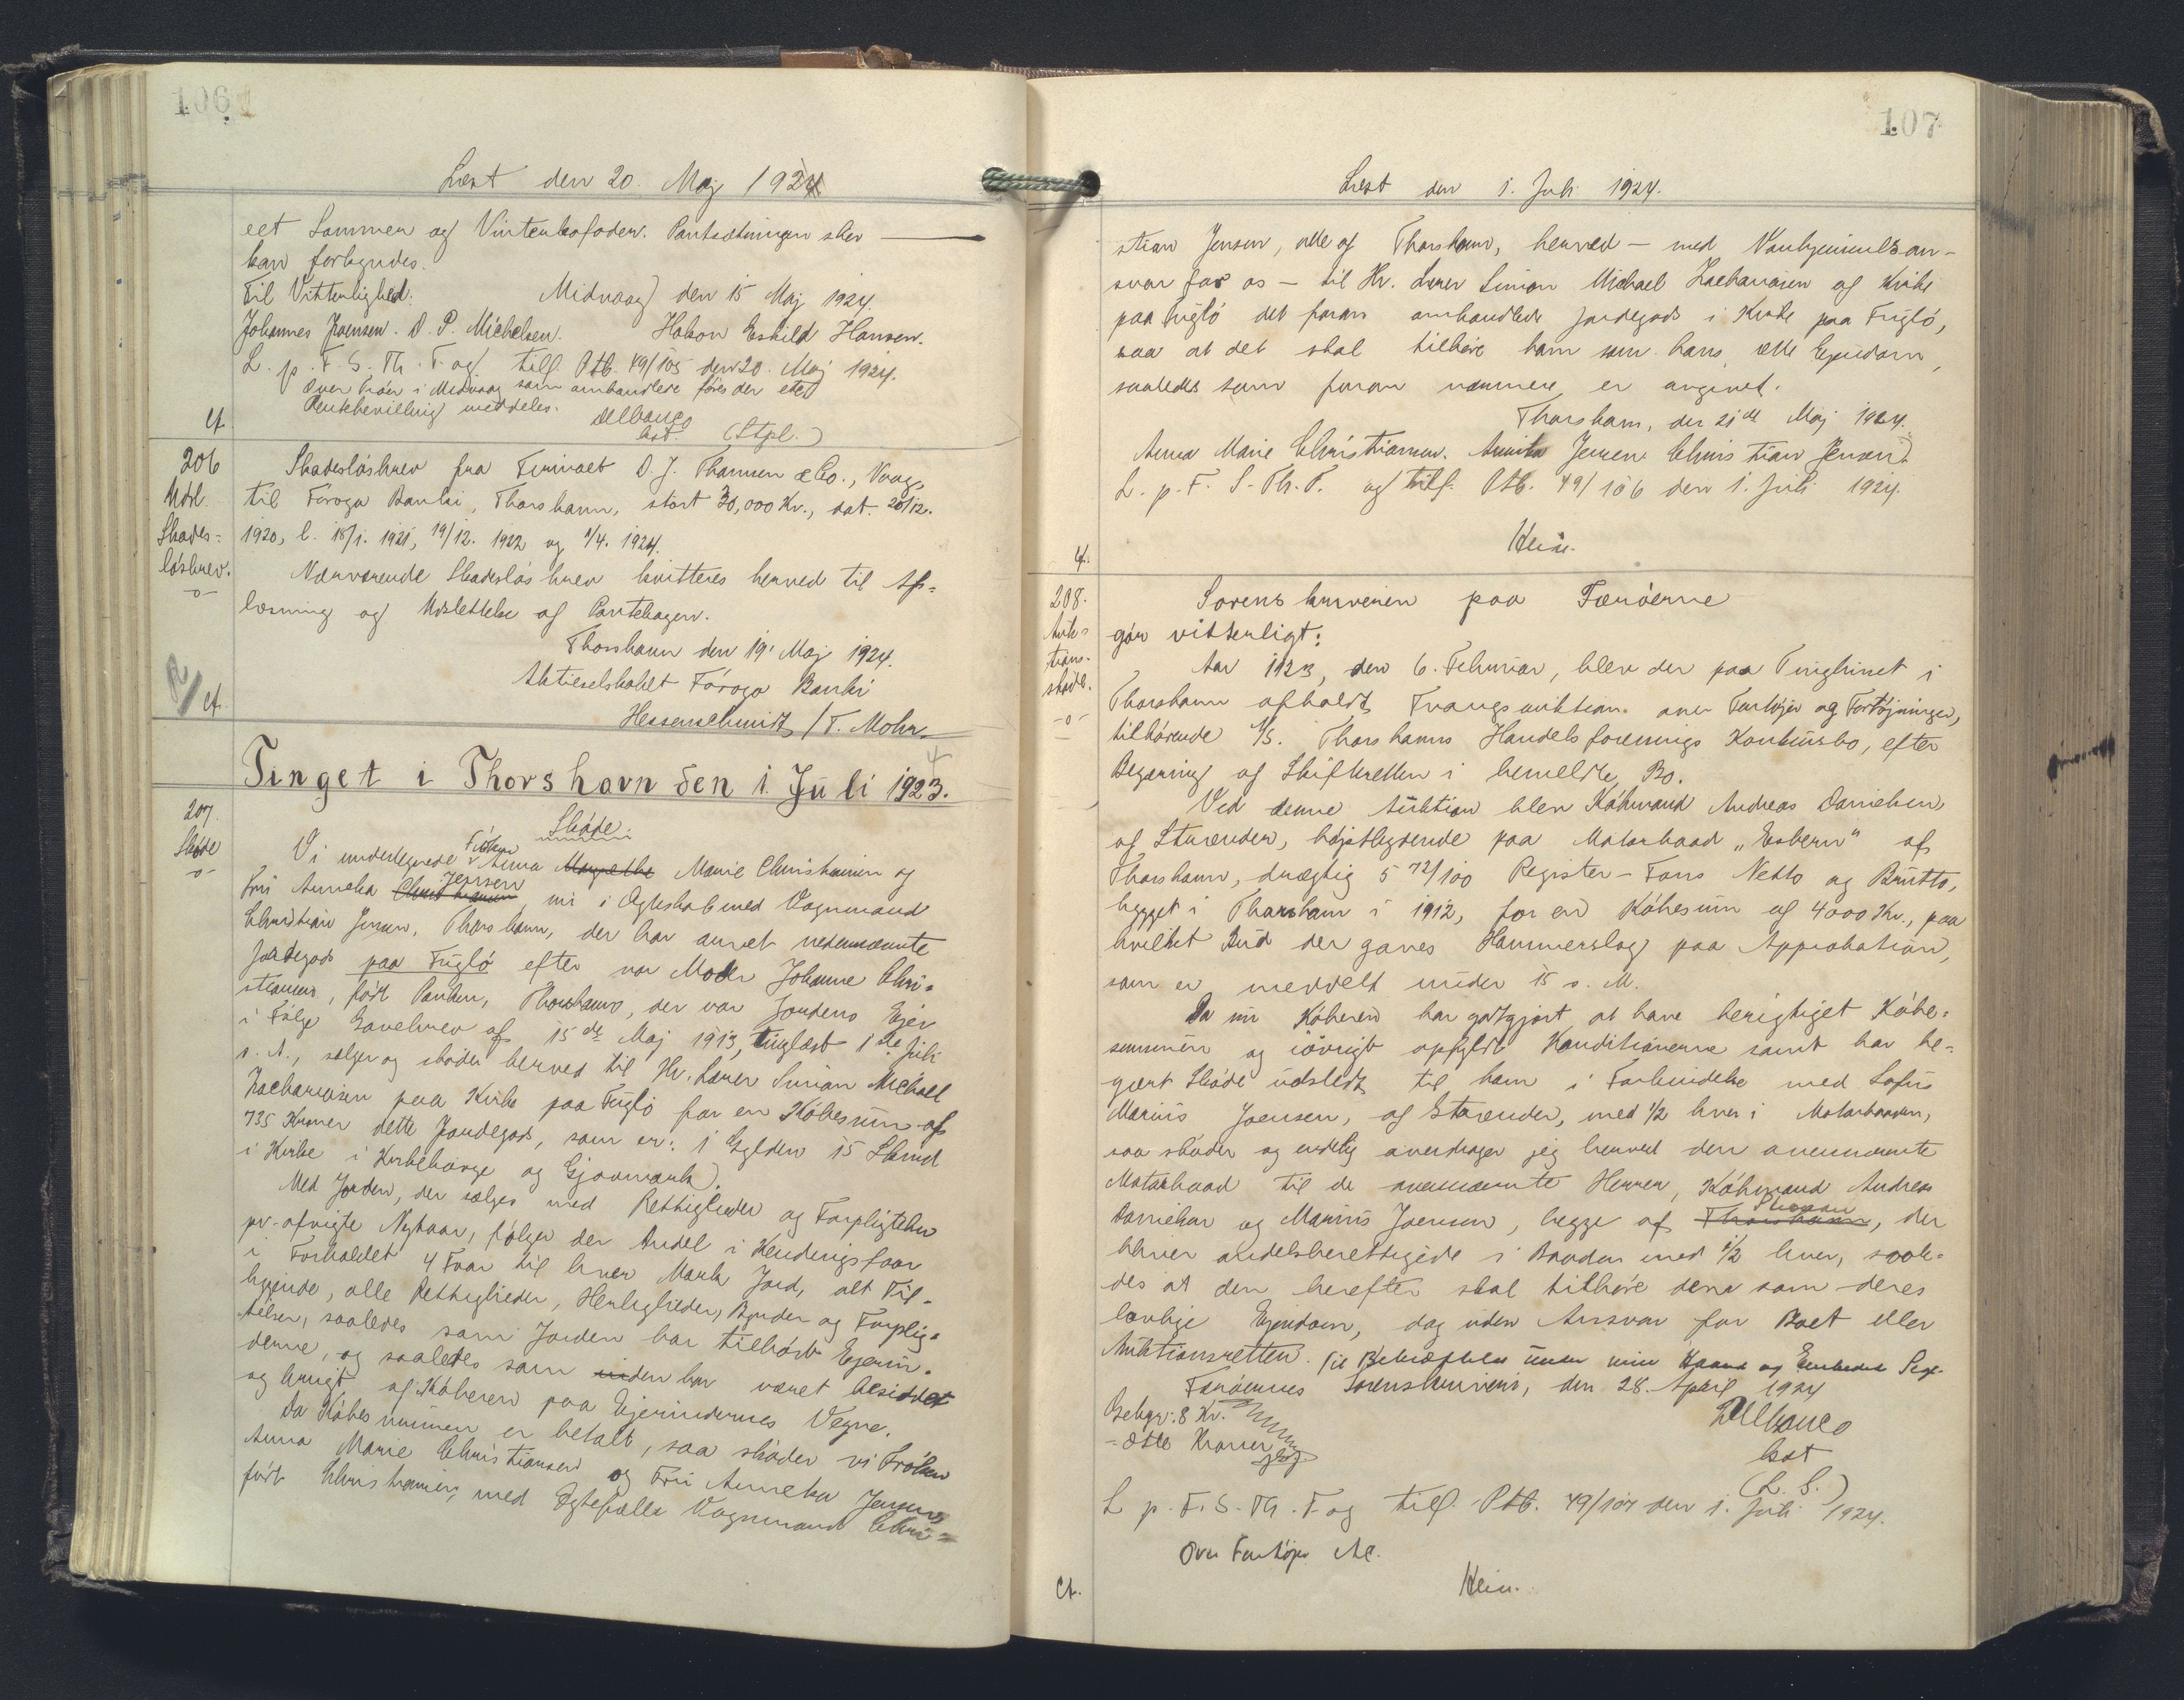 106
Læst den 20. Maj 1924
eet Sommer og Vinterkofoder. Pantsætningen sker
kan forbyndes.
Til Vitterlighed: Midvaag den 15 Maj 1924.
Johannes Joensen. D. P. Michelsen. Hakon Eskild Hansen.
L. p. F. S. Th. T. og tilf. Ptb. 49/105 den 20. Maj 1924.
over Kvær i Midvaag som omhandlede føres der eter
Pantebevilling meddeles.
cf. Delbanco
kst. (Stpl.)
206
Udsl.
Skades=
løsbrev.
-o-
Skadesløsbrev fra Firmaet D. J. Thomsen & Co., Vaag,
til Føroya Banki, Thorshavn, stort 30,000 Kr., dat. 20/12.
1920, l. 18/1. 1921, 19/12. 1922 og 1/4. 1924.
Nærværende Skadesløsbrev kvitteres herved til Af=
læsning og Udslettelse af Pantebogen.
Thorshavn den 19' Maj 1924.
Aktieselskabet Føroya Banki
cf. Hessenschmidt / T. Mohr.
Tinget i Thorshavn den 1. Juli 1923.
4
207.
Skøde
-o-
Skøde.
Vi undertegnede Frøken Anna Margrethe Marie Christiansen og
Fru Annika Christiansen Jensen, nu i Ægteskab med Vognmand
Christian Jensen, Thorshavn, der har arvet nedennævnte
Jordegods paa Fuglø efter vor Moder Johanne Chri=
stiansen, født Poulsen, Thorshavn, der var Jordens Ejer
i Følge Gavebrev af 15de Maj 1913, tinglæst 1ste Juli
s. A., sælger og skøder herved til Hr. Lærer Simon Michael
Zachariasen paa Kirke paa Fuglø for en Købesum af
735 Kroner dette Jordegods, som er: 1 Gylden 15 Skind
i Kirke i Kirkehavge og Gjovmark).
Med Jorden, der sælges med Rettigheder og Forpligtelser
pr. afvigte Nytaar, følger der Andel i Kendingsfaar
i Forholdet 4 Faar til hver Mark Jord, alt Til-
liggende, alle Rettigheder, Herligheder, Byrder og Forplig=
telser, saaledes som Jorden har tilhørt Ejerin=
derne, og saaledes som den har været besiddet
og brugt af Køberen paa Ejerindernes Vegne.
Da Købesummen er betalt, saa skøder vi Frøken
Anna Marie Christiansen og Fru Annika Jensen
født Christiansen, med Ægtefælle Vognmand Chri=
107
Læst den 1. Juli 1924.
stian Jensen, alle af Thorshavn, herved — med Vanhjemmelsan-
svar for os — til Hr. Lærer Simon Michael Zachariasen af Kirke
paa Fuglø det foran omhandlede Jordegods i Kirke paa Fuglø,
saa at det skal tilhøre ham som hans ægte Ejendom,
saaledes som foran nærmere er angivet.
Thorshavn, den 21de Maj 1924.
Anna Marie Christiansen. Annika Jensen. Christian Jensen.
L. p. F. S. Th. T. og tilf. Ptb. 49/106 den 1. Juli 1924.
cf. Hein.
208.
Auk=
tions-
skøde.
-o-
Sorenskriveren paa Færøerne
gør vitterligt:
Aar 1923, den 6. Februar, blev der paa Tinghuset i
Thorshavn afholdt Tvangsauktion over Fartøjer og Fortøjninger,
tilhørende A/S. Thorshavns Handelsforenings Konkursbo, efter
Begæring af Skifteretten i bemeldte Bo.
Ved denne Auktion blev Købmand Andreas Danielsen
af Strænder, højstbydende paa Motorbaad „Esbern" af
Thorshavn, drægtig 5 72/100 Register-Tons Netto og Brutto,
bygget i Thorshavn i 1912, for en Købesum af 4000 Kr., paa
hvilket Bud der gaves Hammerslag paa Approbation,
som er meddelt under 15 s. M.
Da nu Køberen har godtgjort at have berigtiget Købe=
summen og iøvrigt opfyldt Konditionerne samt har be=
gært Skøde udstedt til ham i Forbindelse med Sofus
Marius Joensen, af Strænder, med 1/2 hver i Motorbaaden,
saa skøder og endelig overdrager jeg herved den ovennævnte
Motorbaad til de ovennævnte Herrer, Købmand Andreas
Danielsen og Marius Joensen, begge af Thorshavn, der
bliver andelsberettigede i Baaden med 1/2 hver, saale=
des at den herefter skal tilhøre dem som deres
lovlige Ejendom, dog uden Ansvar for Boet eller
Auktionsretten. Til Bekræftelse under min Haand og Embeds Segl.
Færøernes Sorenskriveri, den 28. April 1924
Gebyr: 8 Kr.
= otte Kroner
Delbanco
kst
(L. S.)
L. p. F. S. Th. T. og tilf. Ptb. 49/107 den 1. Juli 1924.
Over Fartøjer
cf. Hein.